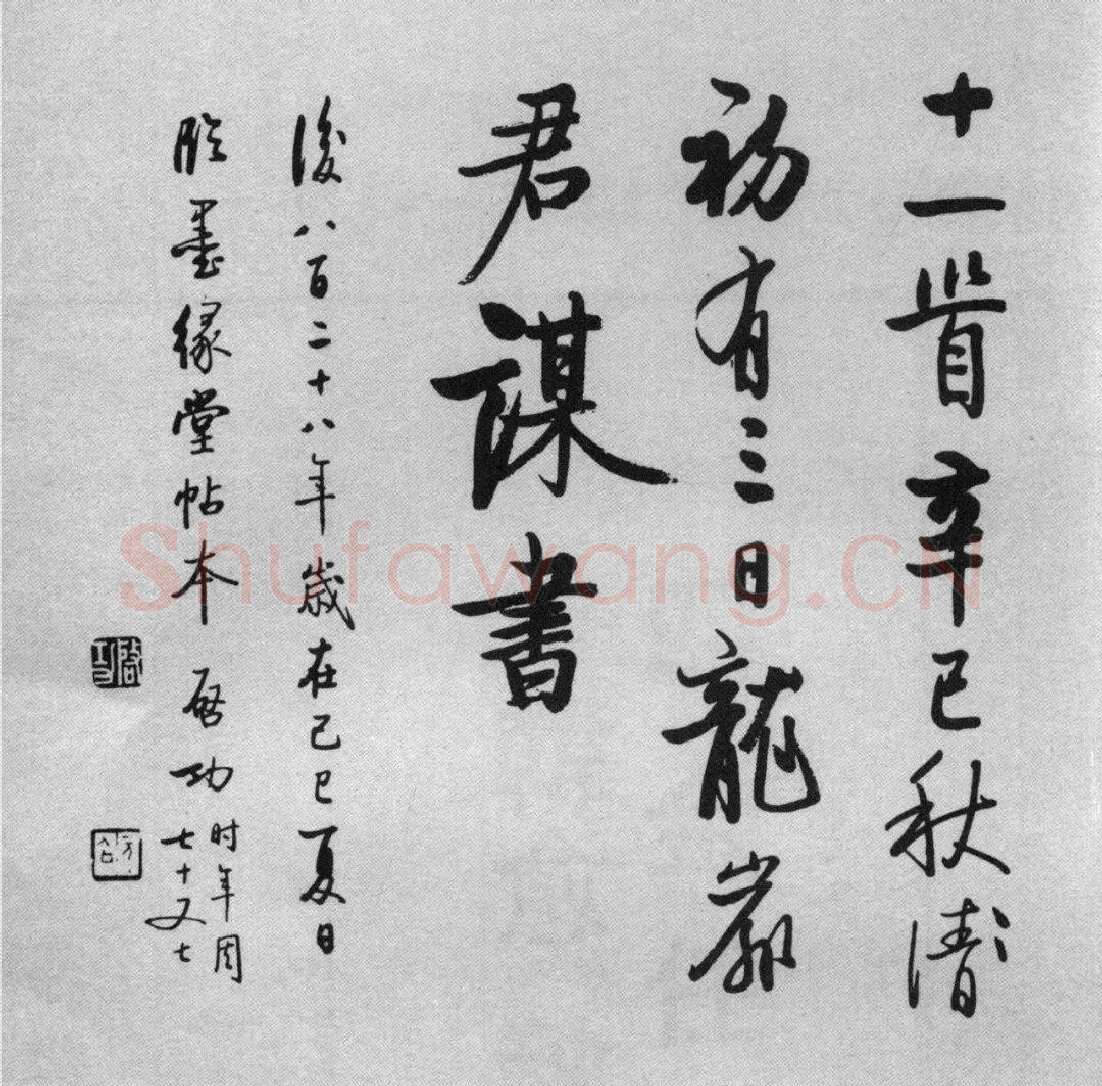 十一旹辛巳秋清
初有三日龍巖
君謨書
後八百二十八年歲在己巳夏日
臨墨緣堂帖本 啓功
时年周
七十又七
啓功
Shufawang.CN